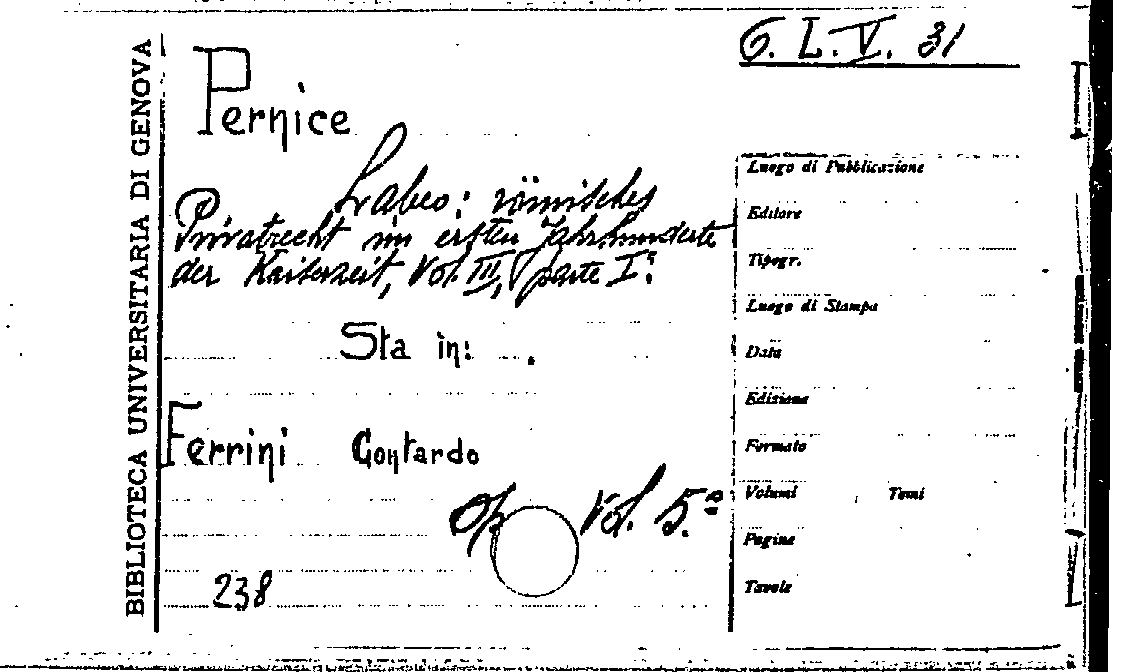 BIBLIOTECA UNIVERSITARIA DI GENOVA
6. L. V. 31
Pernice
Labeo: römisches
Privatrecht im ersten Jahrhunderte
der Kaiserzeit, Vol. III, parte Iª
Sta in:
Ferrini Contardo
Op Vol. 5.º
238
Luogo di Pubblicazione
Editore
Tipogr.
Luogo di Stampa
Data
Edizione
Formato
Volumi Tomi
Pagine
Tavole